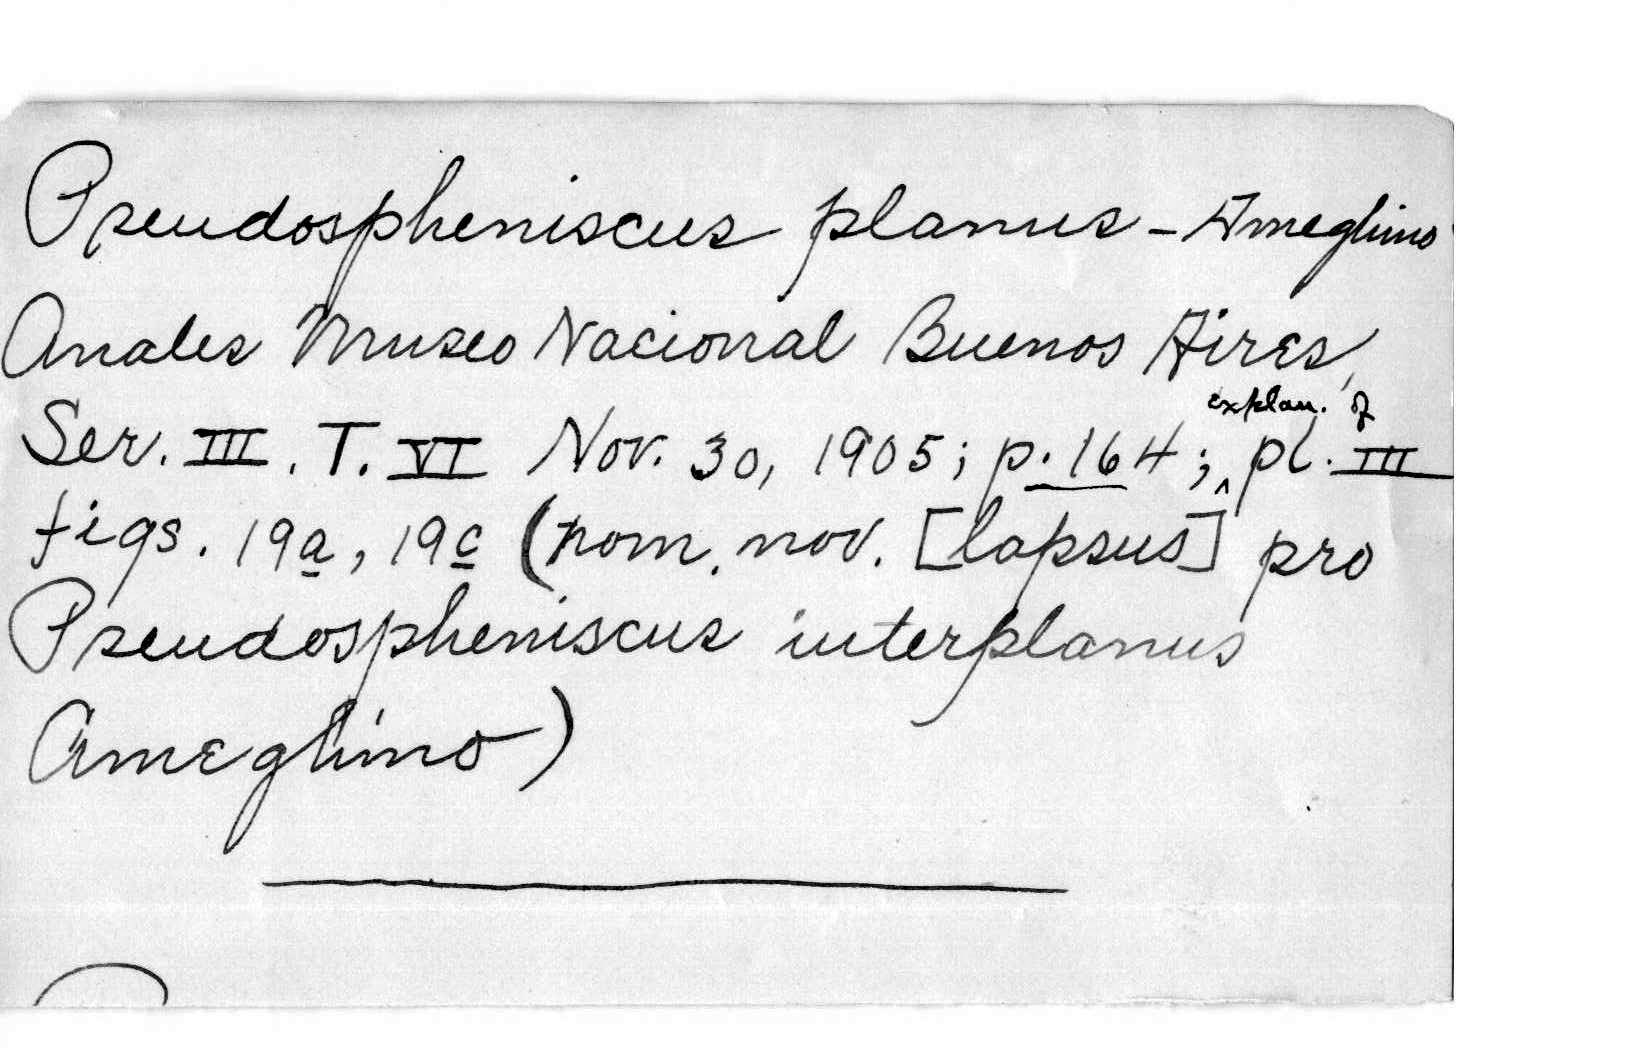 Pseudospheniscus planus - Ameghino
Anales Museo Nacional Buenos Aires,
Ser. III. T. VI Nov. 30, 1905; p. 164; ^explan. of pl. III
figs. 19a, 19c (nom. nov. [lapsus] pro
Pseudospheniscus interplanus
Ameghino)